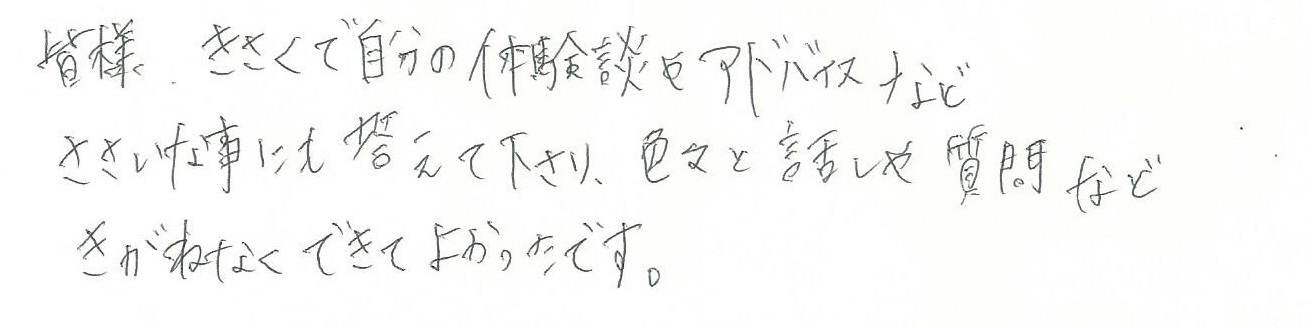 皆様、きさくで自分の体験談やアドバイスなど
ささいな事にも答えて下さり、色々と話しや質問など
きがねなくできてよかったです。